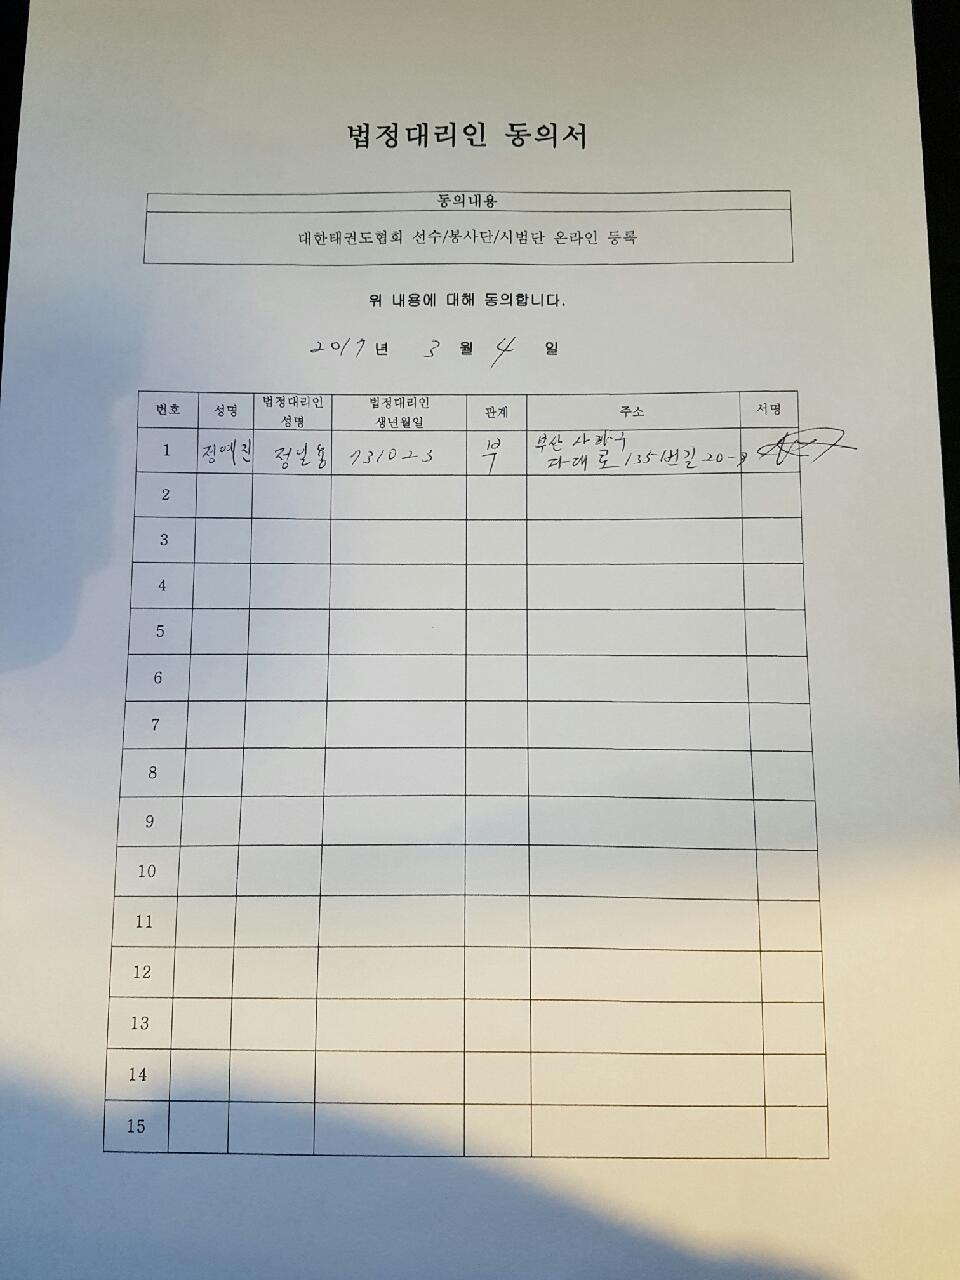 법정대리인 동의서
동의내용
대한태권도협회 선수/봉사단/시범단 온라인 등록
위 내용에 대해 동의합니다.
2017년 3 월 4 일
번호 성명 법정대리인 성명 법정대리인 생년월일 관계 주소 서명
1 정예진 정일용 731023 부 부산 사하구
다대로 135번길 20-9
2
3
4
5
6
7
8
9
10
11
12
13
14
15